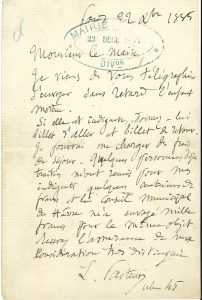 22 Xbre 1885
MAIRIE
23 DEC 1885
DIJON
Monsieur le Maire,
Je viens de vous télégraphier
d'envoyer sans retard l'enfant
mordu.
Si elle est indigente, donnez-lui
billet d'aller et billet de retour.
Je pourrai me charger de frais
de séjour. Quelques personnes déjà
traitées m'ont remis pour mes
indigents quelques centaines de
francs et le Conseil municipal
du Hâvre m'a envoyé mille
francs pour le même objet.
Recevez l'assurance de ma
considération très distinguée
L. Pasteur
rue d'Ulm 45